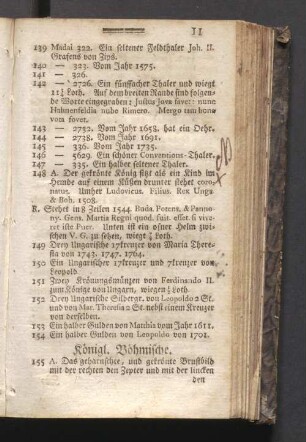 11
139 Madai 322. Ein seltener Feldthaler Joh. II.
Grafens von Zips.
140 — 323. Vom Jahr 1575.
141 — 326.
142 — 2726. Ein fünffacher Thaler und wiegt
11¼ Loth. Auf dem breiten Rande sind folgen-
de Worte eingegraben: Justus Jova favet: nunc
Hulmenfeldia nube Rimero. Mergo tam bona
vem favet.
143 — 2732. Vom Jahr 1658. hat ein Oehr.
144 — 2738. Vom Jahr 1691.
145 — 336. Vom Jahr 1735.
146 — 5629. Ein schöner Conventions-Thaler.
147 — 335. Ein halber seltener Thaler.
148 A. Der gekrönte König sitzt als ein Kind im
Hemde auf einem Küssen drunter stehet coro-
natus. Umher Ludovicus. Filius. Rex Ungs
& Boh. 1508.
R. Stehet in 8 Zeilen 1544. Buda. Potens. & Panno-
ny. Gem. Martis Regni quond. fuit. esset. si vive-
ret iste Puer. Unten ist ein ofner Helm zwi-
schen V. G. zu sehen, wiegt ⅞ Loth.
149 Drey Ungarische 17kreuzer von Maria There-
sia von 1743. 1747. 1764.
150 Ein Ungarischer 17kreuzer und 7kreuzer von
Leopold
151 Zwey Krönungsmünzen von Ferdinando II.
zum Könige von Ungarn, wiegen ¾ Loth.
152 Drey Ungarische Silbergr. von Leopoldo 2 St.
und von Mar. Theresia 2 St. nebst einen Kreuzer
von derselben.
153 Ein halber Gulden von Matthia vom Jahr 1611.
154 Ein halber Gulden von Leopoldo von 1701.
Königl. Böhmische.
155 A. Das geharnischte, und gekrönte Brustbild
mit der rechten den Zepter und mit der lincken
den